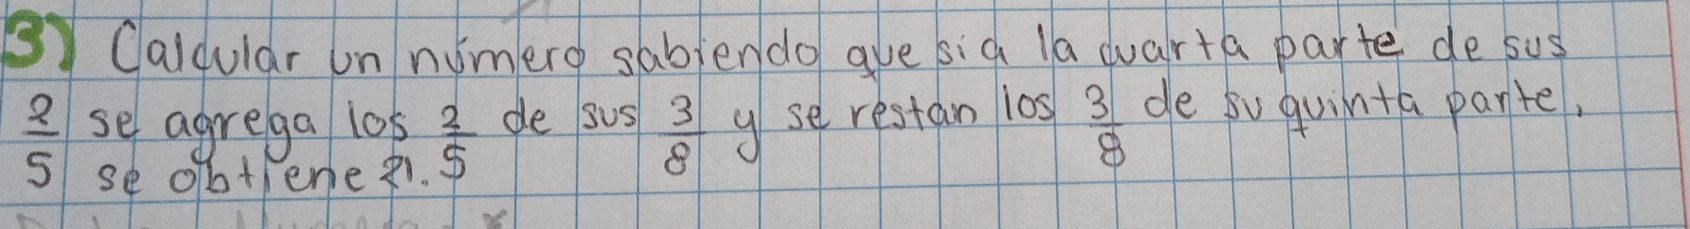 3) Calcular un número sabiendo que si a la cuarta parte de sus
2/5 se agrega los 2/5 de sus 3/8 y se restan los 3/8 de su quinta parte,
se obtiene 21.